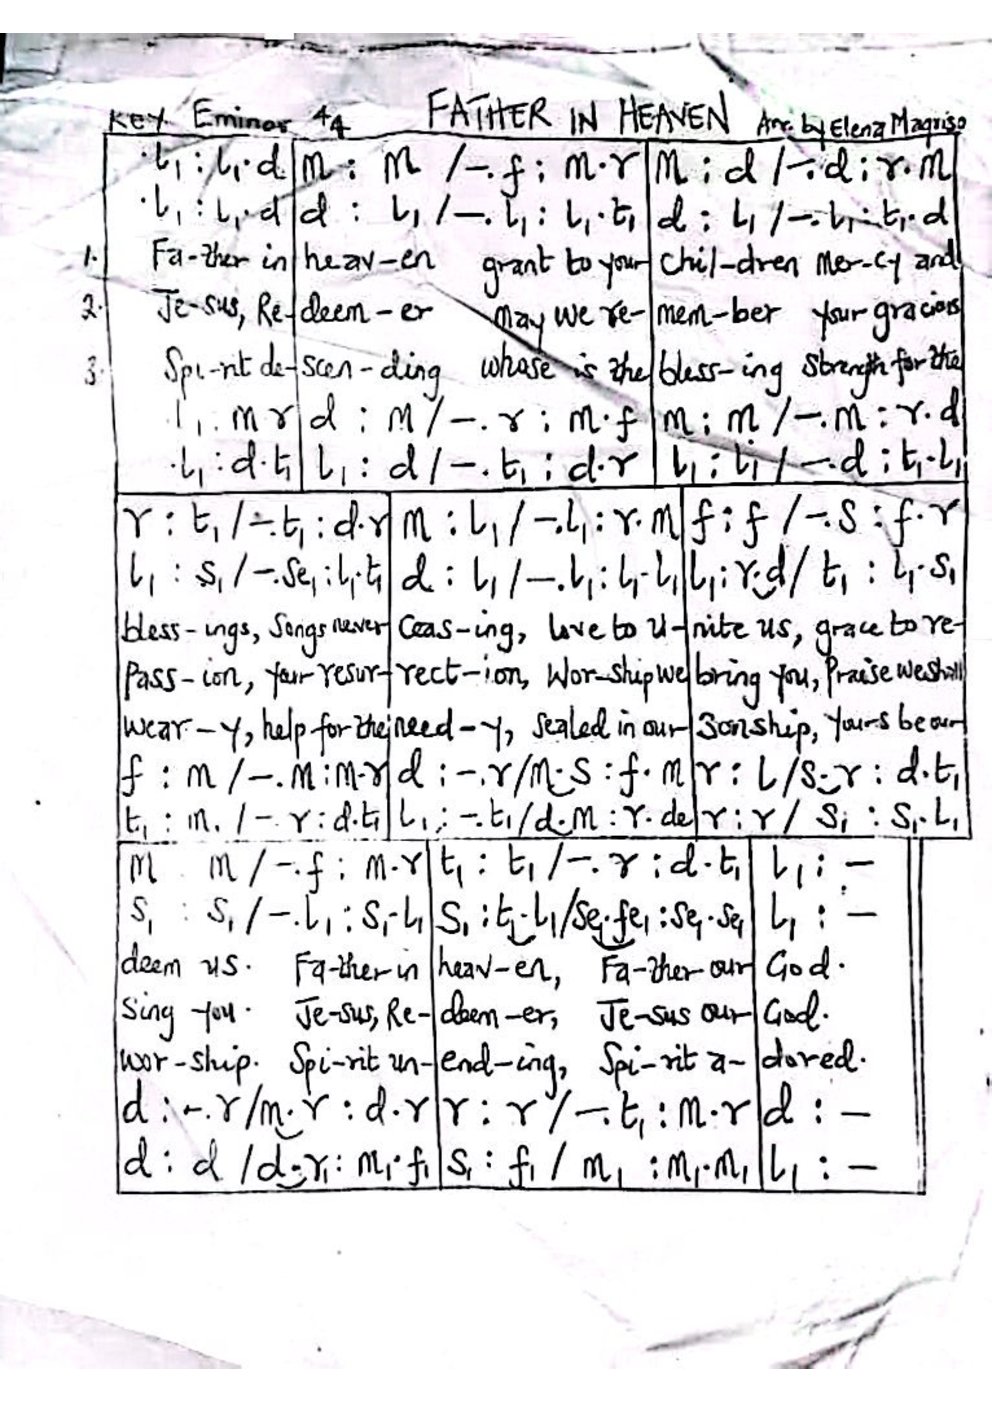 Key Eminor 4/4 FATHER IN HEAVEN Arr. by Elena Maqriso
.l₁ : l₁.d | m : m / -. f : m.r | m : d / -. d : r.m
.l₁ : l₁.d | d : l₁ / -. l₁ : l₁.t₁ | d : l₁ / -. l₁ : t₁.d
1. Fa-ther in | heav-en grant to your | chil-dren Mer-cy and
2. Je-sus, Re- | deem-er may we re- | mem-ber your gracious
3. Spi-rit de- | scen-ding whose is the | bless-ing Strength for the
l₁. m r | d : m / -. r : m.f | m : m / -. m : r.d
.l₁ : d.t₁ | l₁ : d / -. t₁ : d.r | l₁ : l₁ / -. d : t₁.l₁
r : t₁ / -. t₁ : d.r | m : l₁ / -. l₁ : r.m | f : f / -. s : f.r
l₁ : s₁ / -. se₁ : l₁.t₁ | d : l₁ / -. l₁ : l₁.l₁ | l₁ : r.d / t₁ : l₁.s₁
bless-ings, Songs never | Ceas-ing, love to u- | nite us, grace to re-
Pass-ion, your resur- | rect-ion, Wor-ship we | bring you, Praise we shall
wear-y, help for the | need-y, sealed in our | Sonship, yours be our
f : m / -. m : m.r | d : -. r / m.s : f.m | r : l / s.r : d.t₁
t₁ : m₁ / -. r : d.t₁ | l₁ : -. t₁ / d.m : r.de | r : r / s₁ : s₁.l₁
m m / -. f : m.r | t₁ : t₁ / -. r : d.t₁ | l₁ : -
s₁ : s₁ / -. l₁ : s₁.l₁ | s₁ : t₁.l₁ / se₁.fe₁ : se₁.se₁ | l₁ : -
deem us. Fa-ther in | heav-en, Fa-ther our | God.
Sing you. Je-sus, Re- | deem-er, Je-sus our | God.
wor-ship. Spi-rit un- | end-ing, Spi-rit a- | dored.
d : -. r / m.r : d.r | r : r / -. t₁ : m.r | d : -
d : d / d.r₁ : m₁.f₁ | s₁ : f₁ / m₁ : m₁.m₁ | l₁ : -